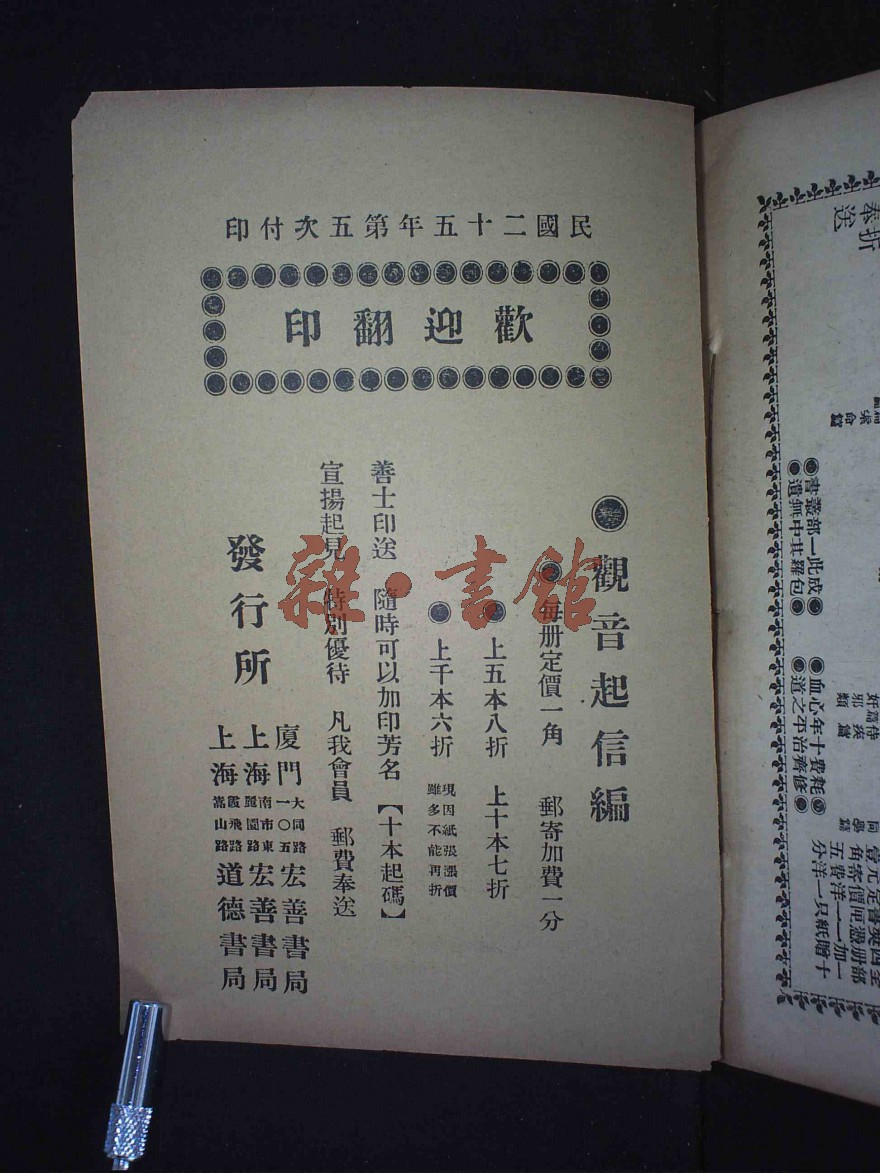 民國二十五年第五次付印
歡迎翻印
觀音起信編
每册定價一角 郵寄加費一分
上五本八折 上十本七折
上千本六折 現因紙張漲價
雖多不能再折
善士印送 隨時可以加印芳名【十本起碼】
宣揚起見 特別優待 凡我會員 郵費奉送
發行所
廈門 大同路一〇五 宏善書局
上海 南市東 園路 宏善書局
上海 霞飛路嵩山路 道德書局
雜·書館
折
奉送
血心年十費耗
道之平治齊修
書叢部一此成
遺無中其羅包